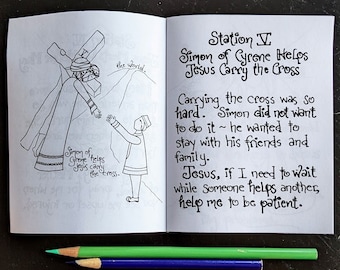 the world.
Simon of
Cyrene helps
Jesus carry
the cross.
Station V
Simon of Cyrene Helps
Jesus Carry the Cross
Carrying the cross was so
hard. Simon did not want
to do it ~ he wanted to
stay with his friends and
family.
Jesus, if I need to wait
while someone helps another,
help me to be patient.